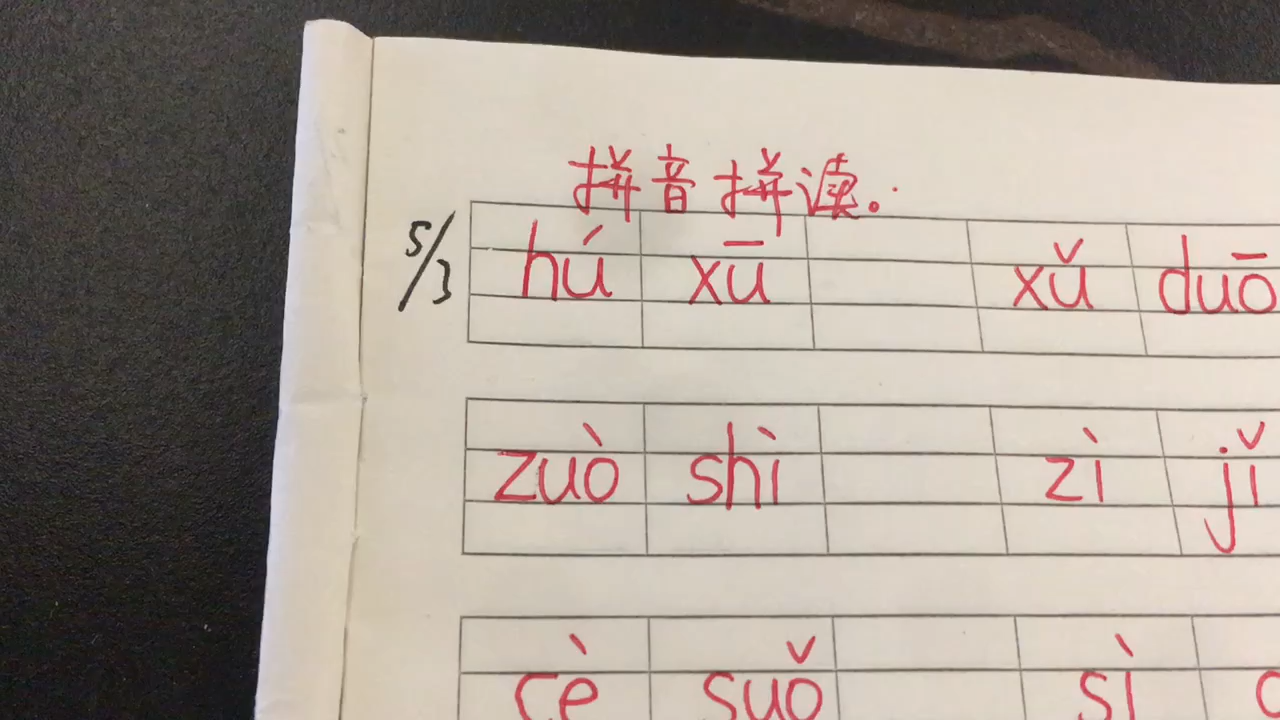 拼音拼读.
5/3 hú xū xǔ duō
zuò shì zì jǐ
cè suǒ sì